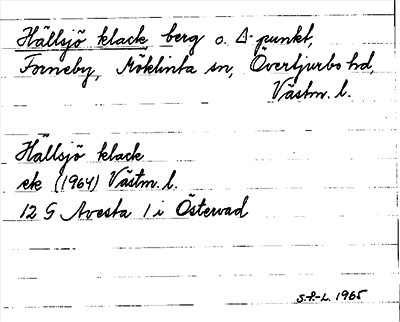 Hällsjö klack berg o. Δ-punkt,
Forneby, Möklinta sn, Övertjurbo hd,
Västm. l.
Hällsjö klack
ek (1964) Västm. l.
12 G Avesta 1 i Östervad
S.P.L. 1965